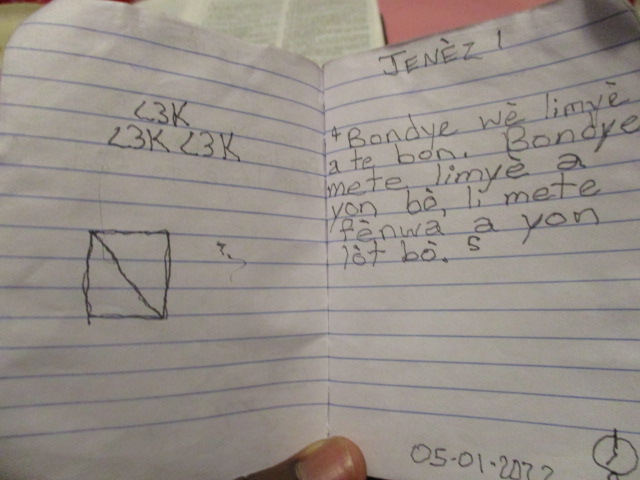 <3K
<3K <3K
JENÈZ 1
4 Bondye wè limyè
a te bon. Bondye
mete limyè a
yon bò, li mete
fènwa a yon
lòt bò. 5
05-01-2022